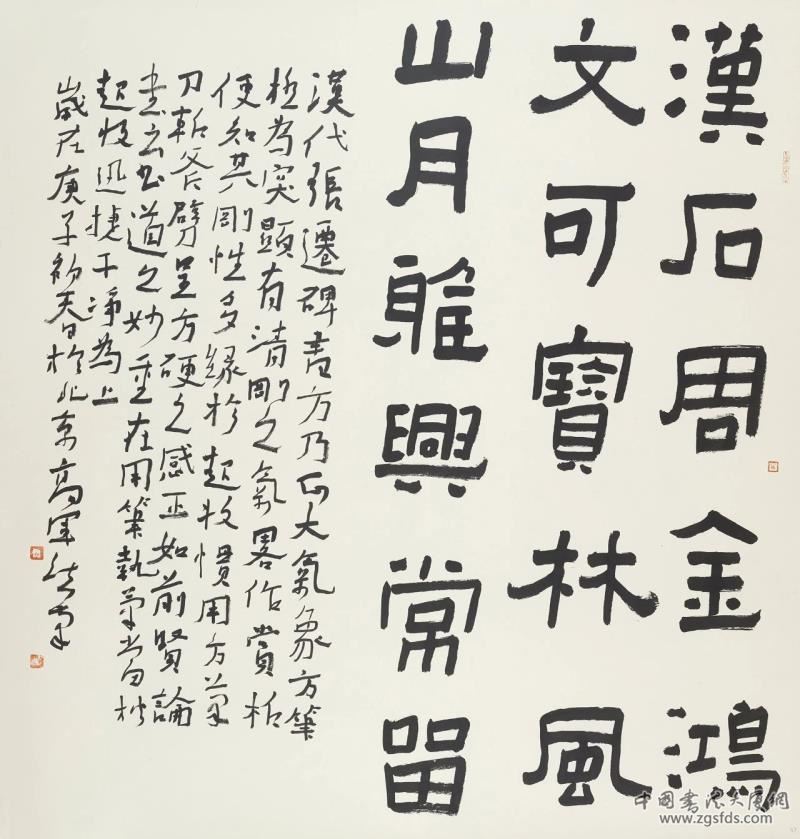 漢石周金鴻
文可寶林風
山月雅興常留
漢代張遷碑書方乃正大氣象方筆
極為突顯有清剛之氣略作賞析
便知其剛性多緣於起收慣用方筆
刀斬斧劈呈方硬之感正如前賢論
書云書道之妙重在用筆執筆當向於
起收迅捷干淨為上
歲在庚子初春日於北京高軍法
中國書法大廈網
www.zgsfds.com